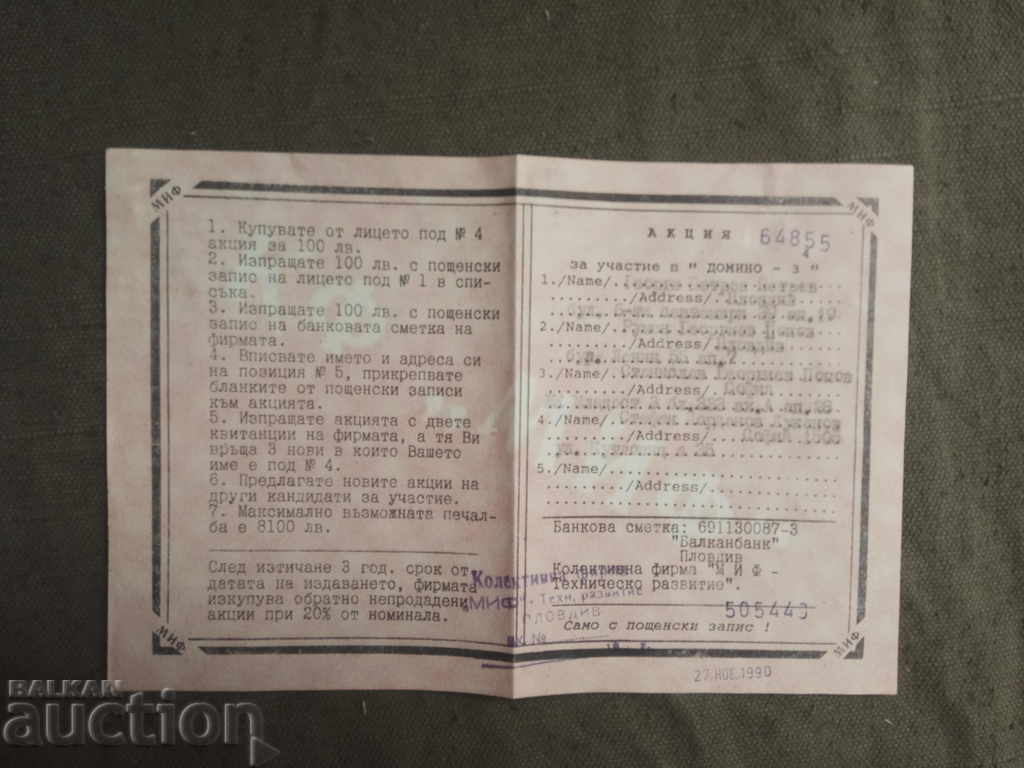 МИФ
МИФ
1. Купувате от лицето под № 4
акция за 100 лв.
2. Изпращате 100 лв. с пощенски
запис на лицето под № 1 в спи-
съка.
3. Изпращате 100 лв. с пощенски
запис на банковата сметка на
фирмата.
4. Вписвате името и адреса си
на позиция № 5, прикрепвате
бланките от пощенски записи
към акцията.
5. Изпращате акцията с двете
квитанции на фирмата, а тя Ви
връща 3 нови в които Вашето
име е под № 4.
6. Предлагате новите акции на
други кандидати за участие.
7. Максимално възможната печал-
ба е 8100 лв.
След изтичане 3 год. срок от
датата на издаването, фирмата
изкупува обратно непродадени
акции при 20% от номинала.
АКЦИЯ 64855
4
за участие в " ДОМИНО - 3 "
1./Name/
/Address/ Пловдив
2./Name/ Георгиев Попов
/Address/ Пловдив
бул. Ленин ап. 2
3./Name/ Станислав Георгиев Попов
/Address/ София
4./Name/
/Address/ София
5./Name/
/Address/
Банкова сметка: 691130087-3
"Балканбанк"
Пловдив
Колективна фирма "М И Ф -
Техническо развитие".
505440
Само с пощенски запис !
Колективна фирма
"МИФ - Техн. развитие
ПЛОВДИВ
27. НОЕ. 1990
МИФ
МИФ
BALKAN
auction